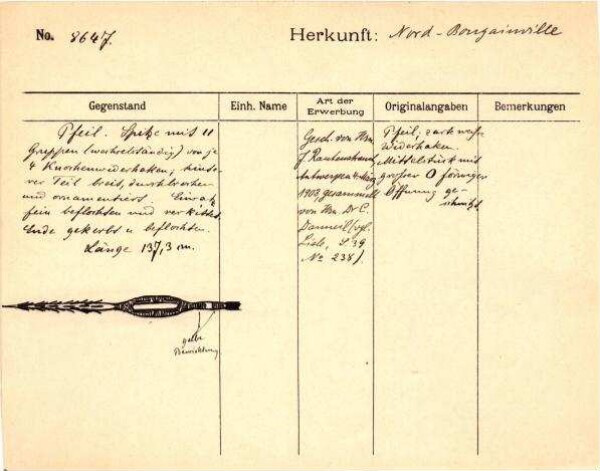 No. 8647.
Herkunft: Nord-Bougainville
Gegenstand
Einh. Name
Art der Erwerbung
Originalangaben
Bemerkungen
Pfeil. Spitze mit 11
Gruppen (wechselständig) von je
4 Knochenwiderhaken; hinte-
rer Teil breit, durchbrochen
und ornamentiert. Einsatz
fein beflochten und verkittet.
Ende gekerbt u beflochten.
Länge 137,3 cm.
gelbe
Gesch. von Hrn
J. Rautenstrauch,
Antwerpen
1903, gesammelt
von Hrn Dr. C.
Danneil (vgl.
Liste, S. 39
No 238).
Pfeil,
Widerhaken.
Mittelstück mit
grosser O förmiger
Öffnung ge-
schnitzt